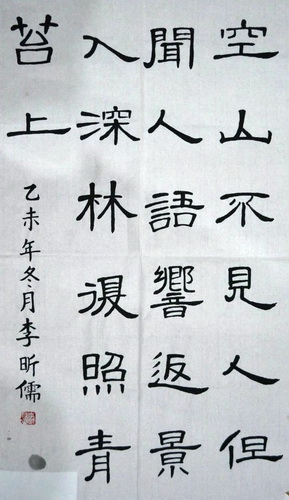 空山不見人但
聞人語響返景
入深林復照青
苔上
乙未年冬月李昕儒